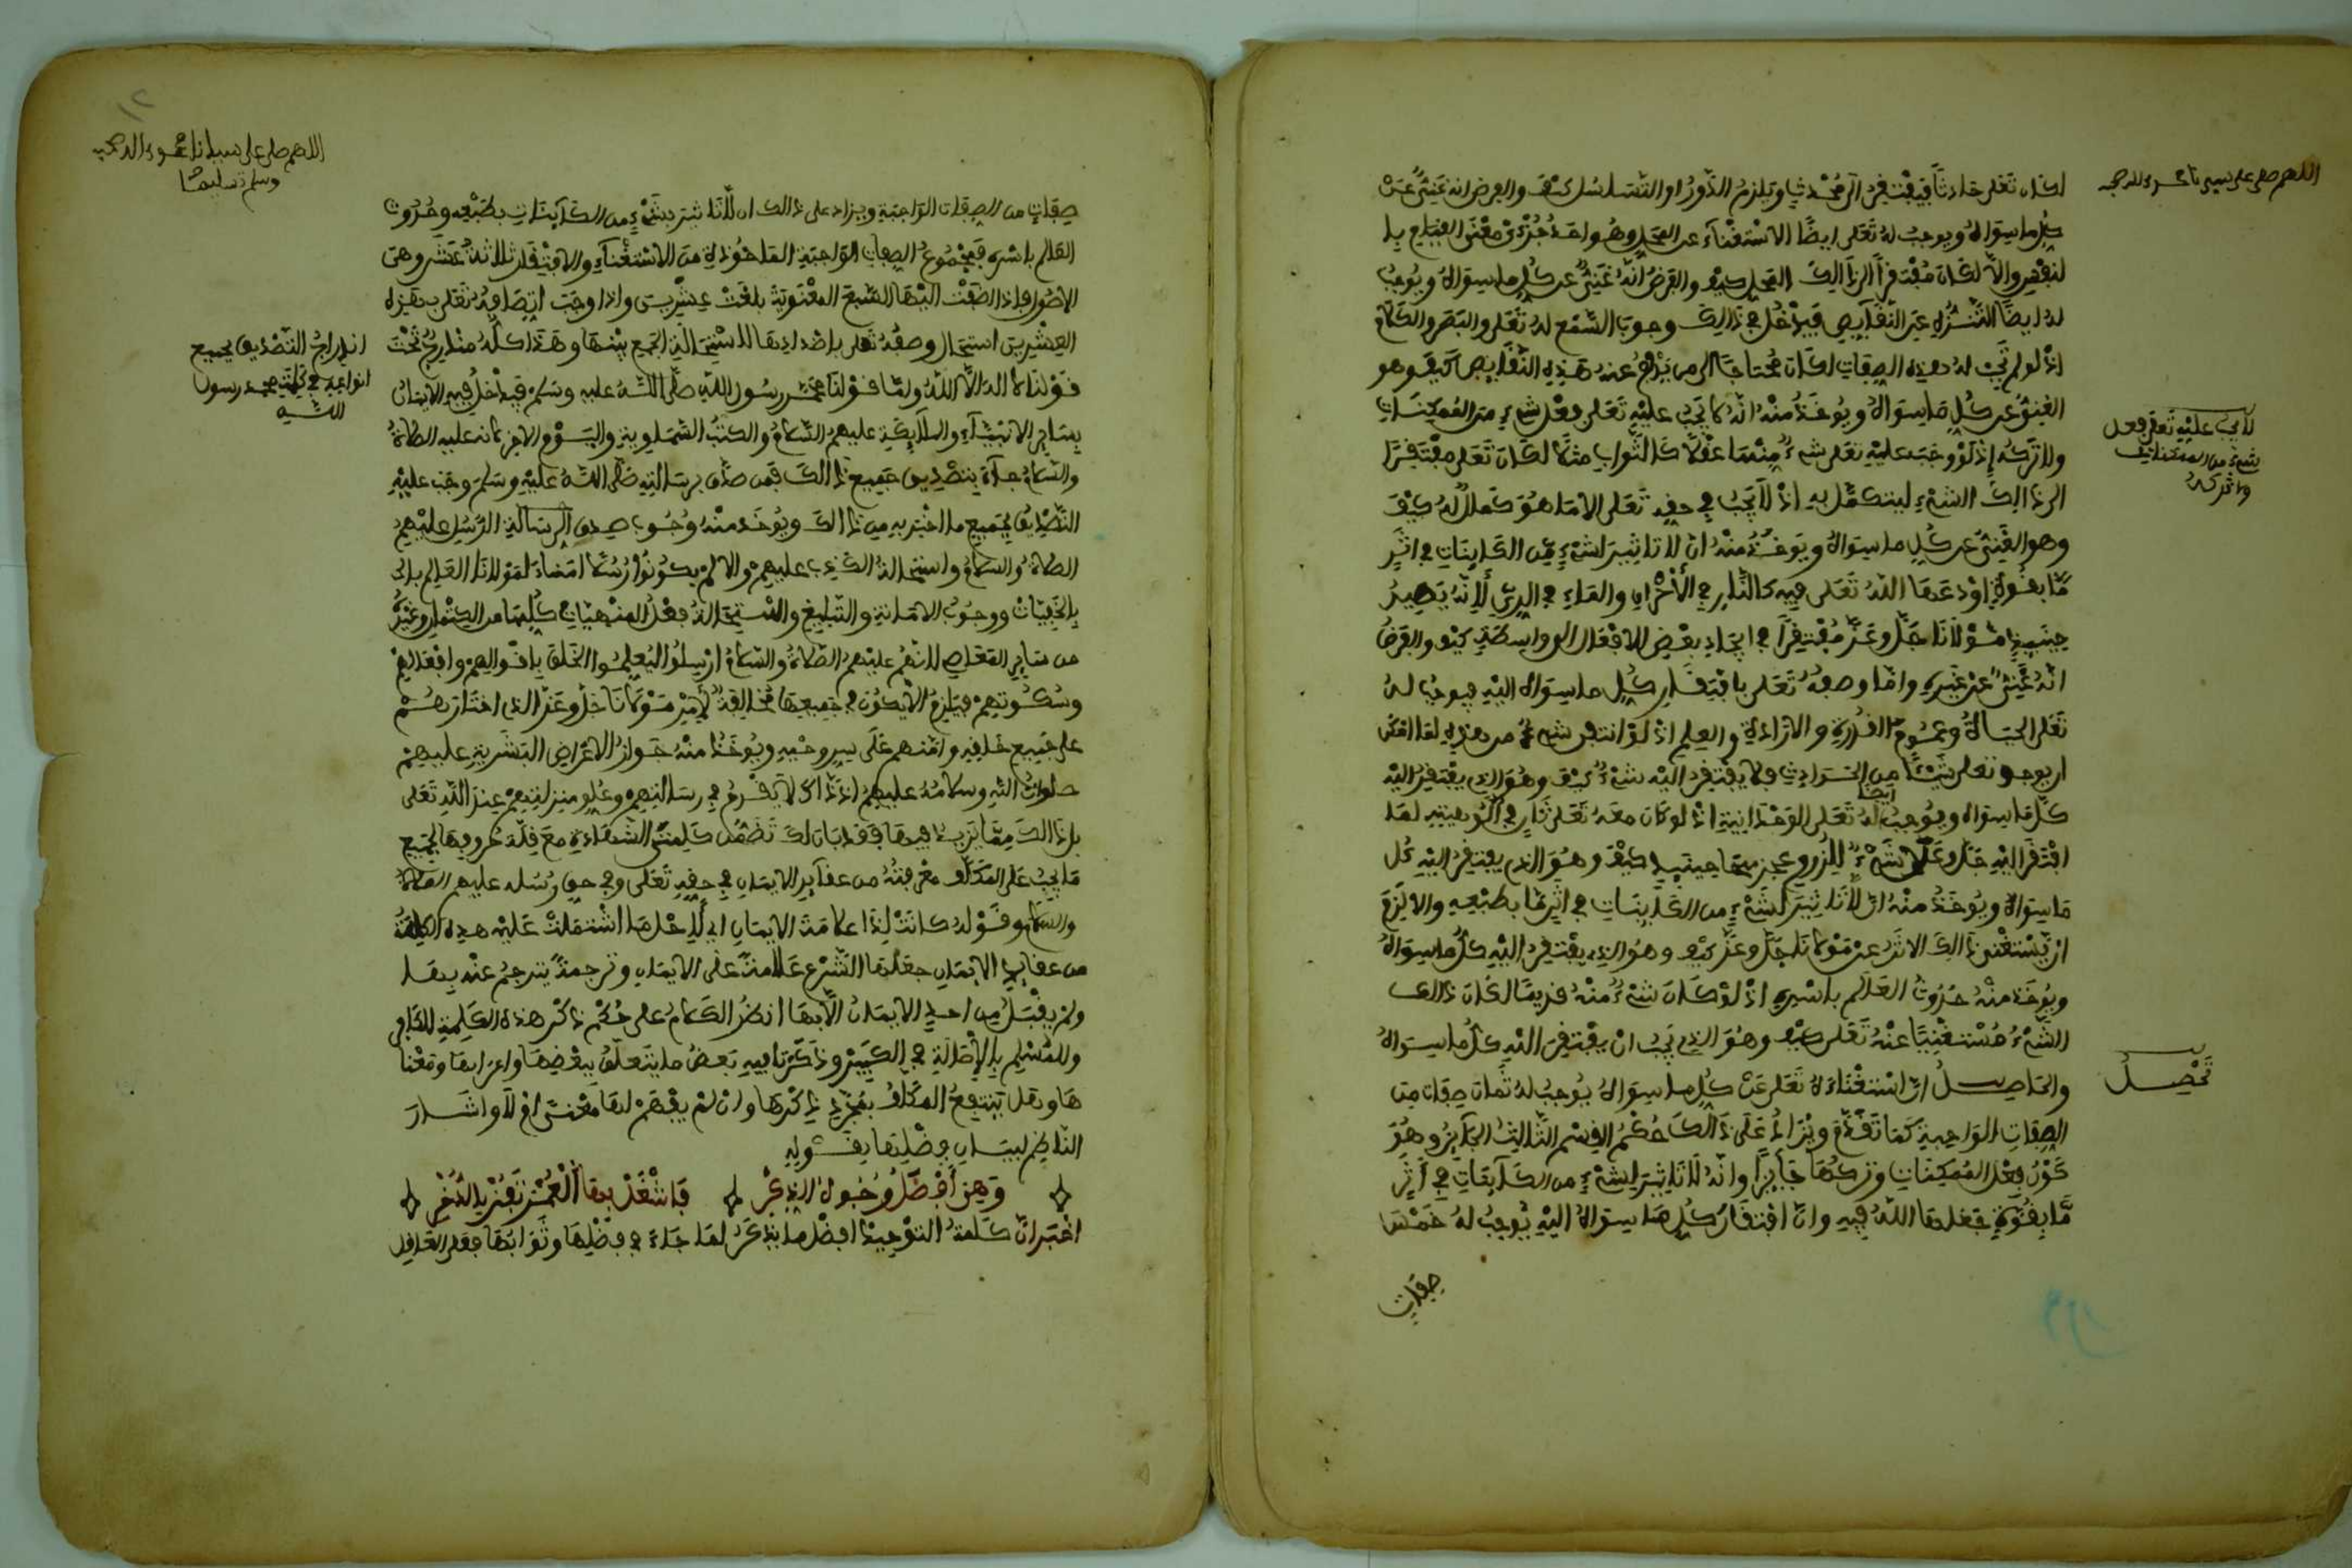 اللهم صل على سيدنا محمد واله وصحبه
لكان تعلى حادثا فيفتفر الى محدث ويلزم الدور او التسلسل كيف والفرض انه غني عن
كل ما سواه ويوجب له تعلى ايضا الاستغناء عن المحل وهو احد جزءي معنى القيام بل
لنفسه والا لكان مفتقرا الى ذالك المحل كيف والفرض انه غني عن كل ما سواه ويوجب
له ايضا التنزه عن النقايص فيدخل في ذالك وجوب السمع له تعلى والبصر والكلام
اذ لو لم تجب له هذه الصفات لكان محتاجا الى من يدفع عنه هذه النقايص كيف وهو
الغني عن كل ما سواه ويوخذ منه انه لا يجب عليه تعلى فعل شيء من الممكنات
ولا تركه اذ لو وجب عليه تعلى شيء منها عقلا كالثواب مثلا لكان تعلى مفتقرا
لا يجب عليه تعلى فعل
شيء من الممكنات
ولا تركه
الى ذالك الشيء ليتكمل به اذ لا يجب في حقه تعلى الا ما هو كمال له كيف
وهو الغني عن كل ما سواه ويوخذ منه ان لا تاثير لشيء من الكاينات في اثر
ما بقوة اودعها الله تعلى فيه كالنار في الاحراق والماء في الري لانه يصير
حينيذ مولانا جل وعز مفتقرا في ايجاد بعض الافعال الى واسطة كيف والفرض
انه غني عن غيره واما وصفه تعلى بافتقار كل ما سواه اليه فيوجب له
تعلى الحياة وعموم القدرة والارادة والعلم اذ لو انتفى شيء من هذه لما امكن
ان يوجد تعلى شيئا من الحوادث فلا يفتقر اليه شيء كيف وهو الذي يفتقر اليه
كل ما سواه ويوجب له ايضا تعلى الوحدانية اذ لو كان معه تعلى ثان في الوهيته لما
افتقر اليه جل وعلا شيء للزوم عجزهما حينيذ كيف وهو الذي يفتقر اليه كل
ما سواه ويوخذ منه ان لا تاثير لشيء من الكاينات في اثر ما بطبعه والا لزم
ان يستغني ذالك الاثر عن مولانا جل وعز كيف وهو الذي يفتقر اليه كل ما سواه
ويوخذ منه حدوث العالم باسره اذ لو كان شيء منه قديما لكان ذالك
الشيء مستغنيا عنه تعلى كيف وهو الذي يجب ان يفتقر اليه كل ما سواه
تحصل
والحاصل ان استغناءه تعلى عن كل ما سواه يوجب له ثمان صفات من
الصفات الواجبة كما تقدم ويزاد على ذالك حكم القسم الثالث الجايز وهو
كون فعل الممكنات وتركها جايزا وانه لا تاثير لشيء من الكاينات في اثر
ما بقوة جعلها الله فيه وان افتقار كل ما سواه اليه يوجب له خمس
صفات
١٢
اللهم صل على سيدنا محمد واله وصحبه
وسلم تسليما
صفات من الصفات الواجبة ويزاد على ذالك ان لا تاثير لشيء من الكاينات بطبعه وحدوث
العالم باسره فمجموع الصفات الواجبة الماخوذة من الاستغناء والافتقار ثلاثة عشر وهي
الاصول فاذا اضفت اليها السبع المعنوية بلغت عشرين واذا وجب اتصافه تعلى بهذه
العشرين استحال وصفه تعلى باضدادها لاستحالة الجمع بينهما وهذا كله مندرج تحت
اندراج التصديق بجميع
انواعه في كلمة محمد رسول
الله
قولنا لا اله الا الله واما قولنا محمد رسول الله صلى الله عليه وسلم فيدخل فيه الايمان
بساير الانبياء والملايكة عليهم السلام والكتب السماوية واليوم الاخر لانه عليه الصلاة
والسلام جاء بتصديق جميع ذالك فمن صدق برسالته صلى الله عليه وسلم وجب عليه
التصديق بجميع ما اخبر به من ذالك ويوخذ منه وجوب صدق الرسالة الرسل عليهم
الصلاة والسلام واستحالة الكذب عليهم والا لم يكونوا رسلا امناء لمولانا العالم
بالخفيات ووجوب الامانة والتبليغ واستحالة فعل المنهيات كلها من الكتمان وغيره
من ساير المعاصي لانهم عليهم الصلاة والسلام ارسلوا ليعلموا الخلق باقوالهم وافعالهم
وسكوتهم فيلزم الا يكون في جميعها مخالفة لامر مولانا جل وعز الذي اختارهم
على جميع خلقه وامنهم على سر وحيه ويوخذ منه جواز الاعراض البشرية عليهم
صلوات الله وسلامه عليهم اذ ذاك لا يقدح في رسالتهم وعلو منزلتهم عند الله تعلى
بل ذالك مما يزيد فيها فقد بان لك تضمن كلمتي الشهادة مع قلة حروفها لجميع
ما يجب على المكلف معرفته من عقايد الايمان في حقه تعلى وفي حق رسله عليهم الصلاة
والسلام وقوله كانت لذا علامة الايمان اي لاجل ما اشتملت عليه هذه الكلمة
من عقايد الايمان جعلها الشرع علامة على الايمان وترجمة يترجم عنه بها
ولم يقبل من احد الايمان الا بها انظر الكلام على حكم ذكر هذه الكلمة للكافر
وللمسلم بالاصالة في الكبير وذكرنا فيه بعض ما يتعلق ببعضها واعرابها ومعنا
ها وهل ينتفع المكلف بمجرد ذكرها وان لم يفهم لها معنى ام لا واشار
الناظم لبيان فضلها بقوله
وهي افضل وجوه الذكر فاشغل بها العمر تفز بالذخر
اخبر ان كلمة التوحيد افضل ما يذكر لما جاء في فضلها وثوابها فعلى العاقل